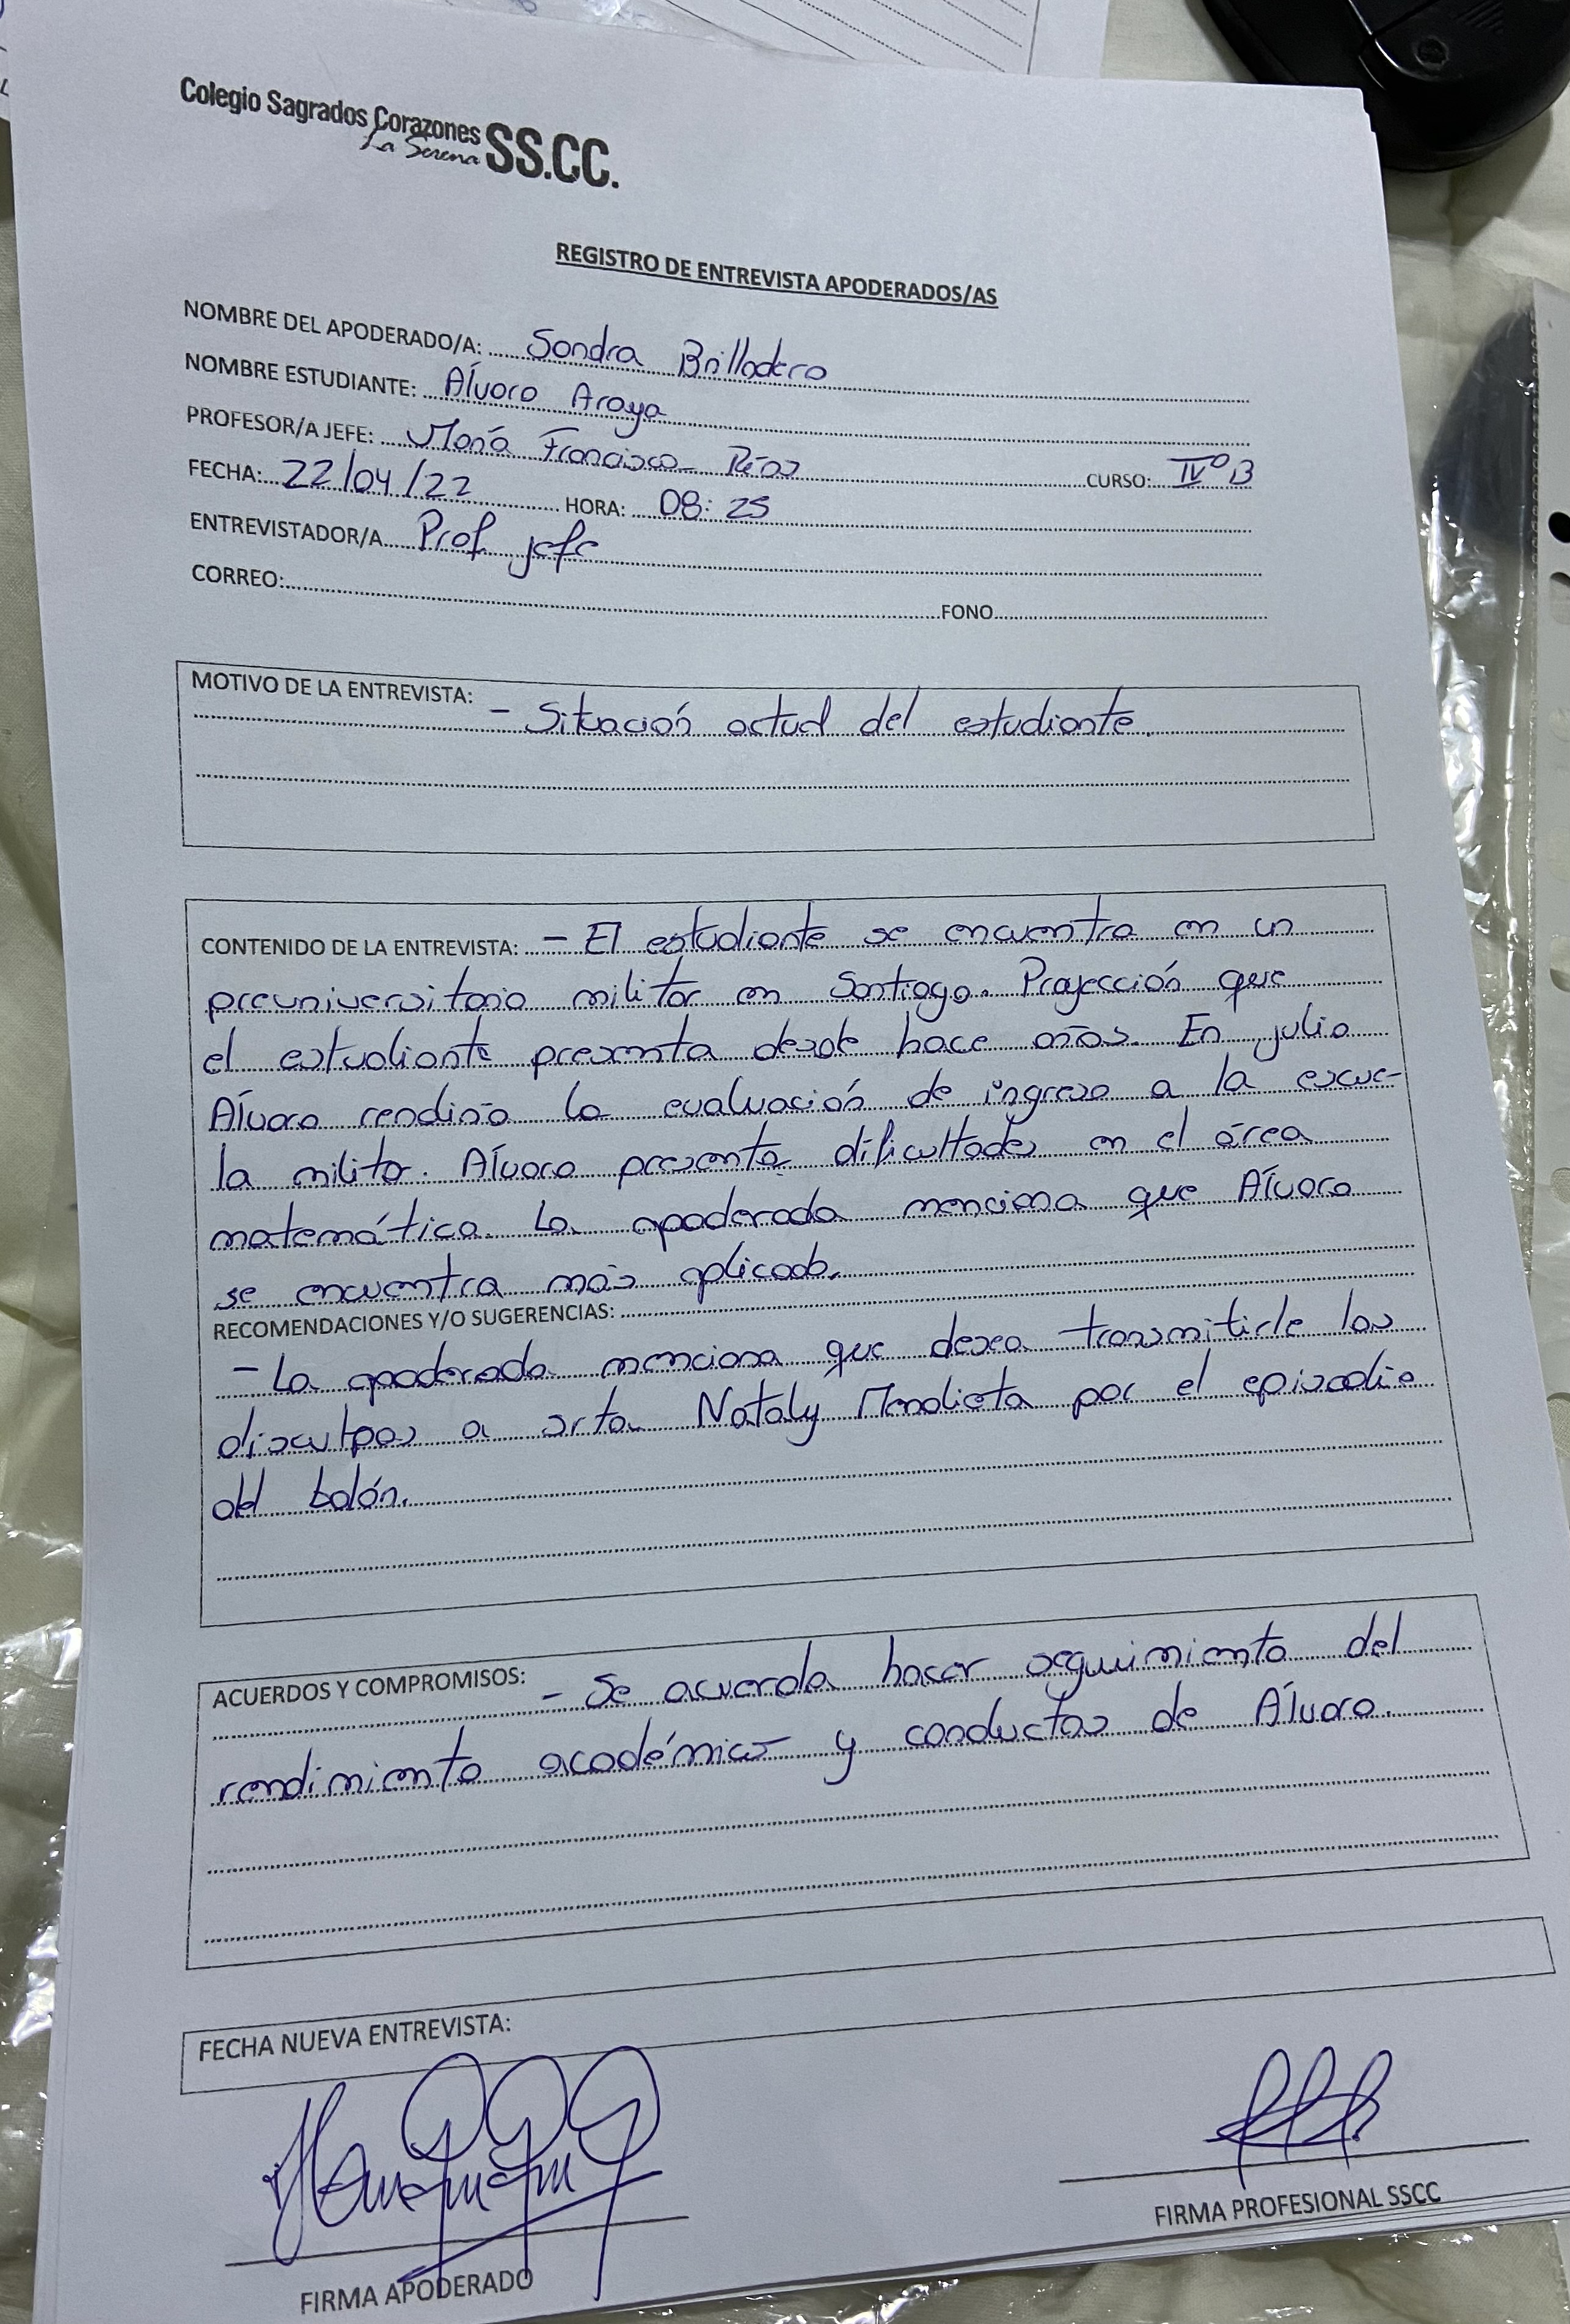 Colegio Sagrados Corazones SS.CC.
La Serena
REGISTRO DE ENTREVISTA APODERADOS/AS
NOMBRE DEL APODERADO/A: Sandra Brilladero
NOMBRE ESTUDIANTE: Álvaro Araya
PROFESOR/A JEFE: María Francisca Ríos CURSO: IVº B
FECHA: 22/04/22 HORA: 08:25
ENTREVISTADOR/A Prof. jefe
CORREO: FONO
MOTIVO DE LA ENTREVISTA: - Situación actual del estudiante.
CONTENIDO DE LA ENTREVISTA: - El estudiante se encuentra en un
preuniversitario militar en Santiago. Proyección que
el estudiante presenta desde hace años. En julio
Álvaro rendirá la evaluación de ingreso a la escue-
la militar. Álvaro presenta dificultades en el área
matemática. La apoderada menciona que Álvaro
se encuentra más aplicado.
RECOMENDACIONES Y/O SUGERENCIAS:
- La apoderada menciona que desea transmitirle las
disculpas a srta. Nataly Mendieta por el episodio
del balón.
ACUERDOS Y COMPROMISOS: - Se acuerda hacer seguimiento del
rendimiento académico y conductas de Álvaro.
FECHA NUEVA ENTREVISTA:
FIRMA PROFESIONAL SSCC
FIRMA APODERADO